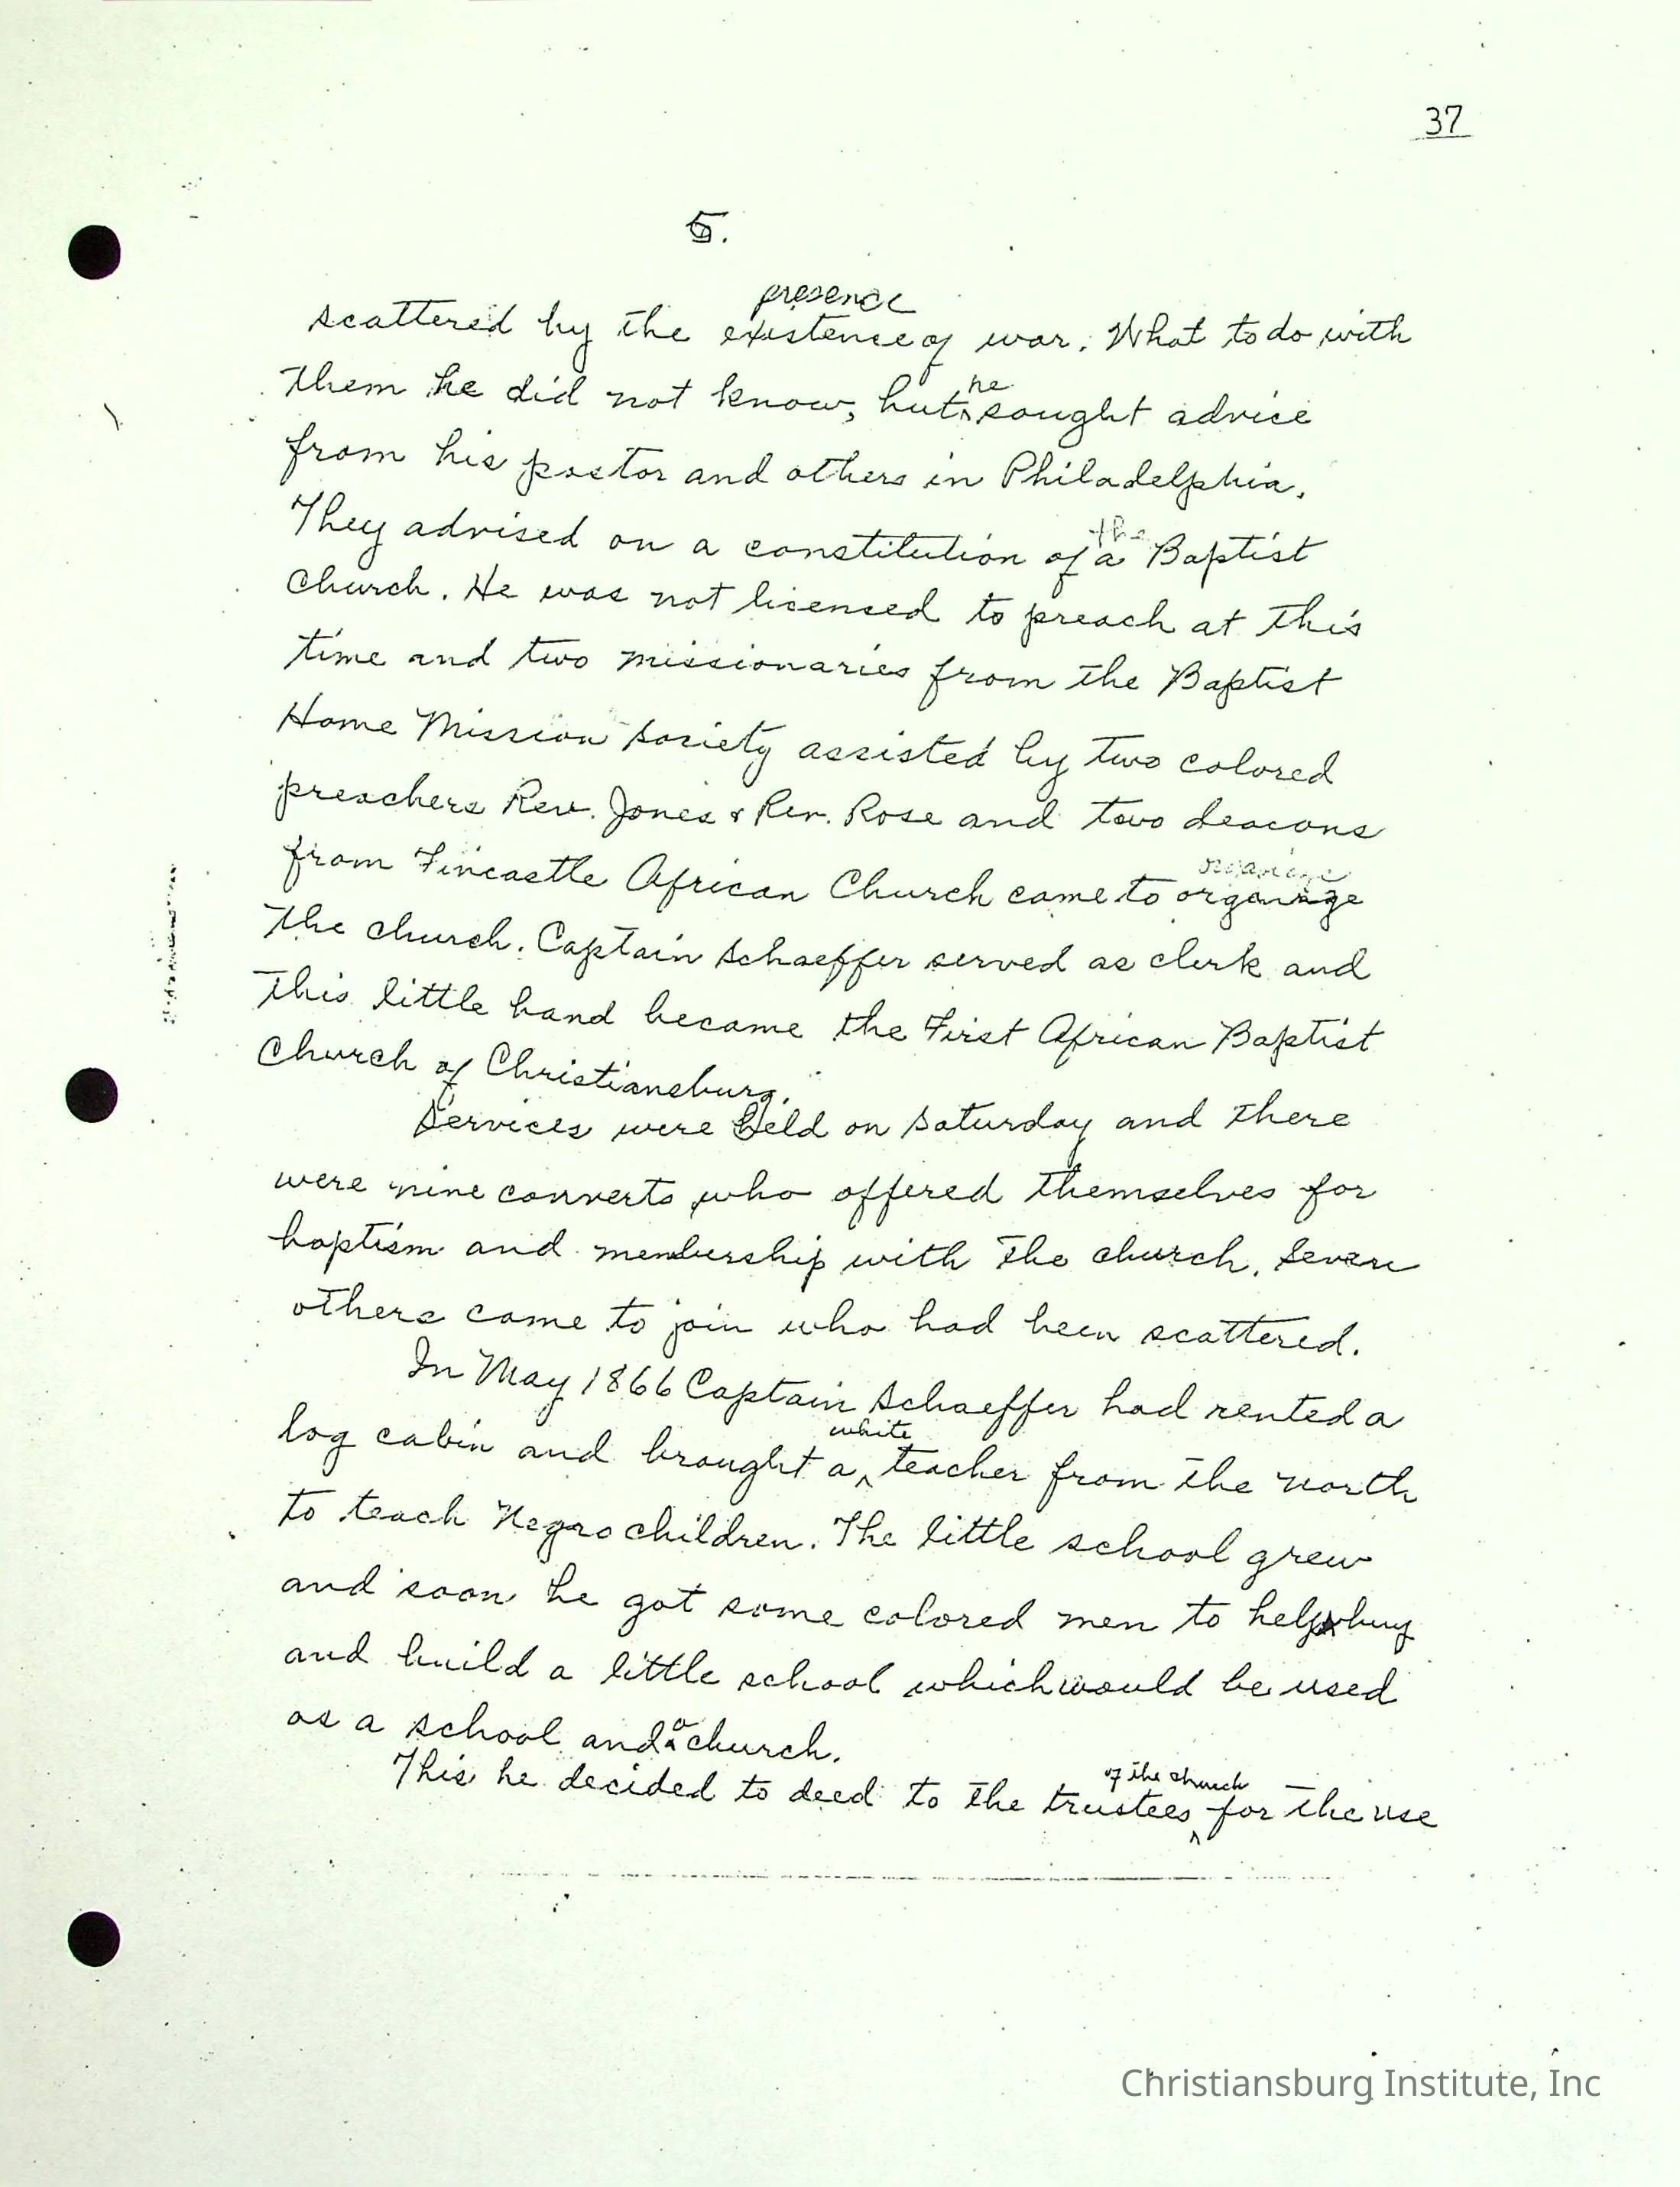 37
5.
presence
scattered by the existence of war. What to do with
he
them he did not know, but ^ sought advice
from his pastor and others in Philadelphia.
the
They advised on a constitution of a Baptist
Church. He was not licensed to preach at this
time and two missionaries from the Baptist
Home Mission Society assisted by two colored
preachers Rev. Jones & Rev. Rose and two deacons
organize
from Fincastle African Church came to organize
the church. Captain Schaeffer served as clerk and
this little band became the First African Baptist
Church of Christiansburg.
Services were held on Saturday and there
were nine converts who offered themselves for
baptism and membership with the church. Seven
others came to join who had been scattered.
In May 1866 Captain Schaeffer had rented a
white
log cabin and brought a ^ teacher from the north
to teach Negro children. The little school grew
and soon he got some colored men to help buy
and build a little school which would be used
a
as a school and ^ church.
of the church
This he decided to deed to the trustees ^ for the use
Christiansburg Institute, Inc